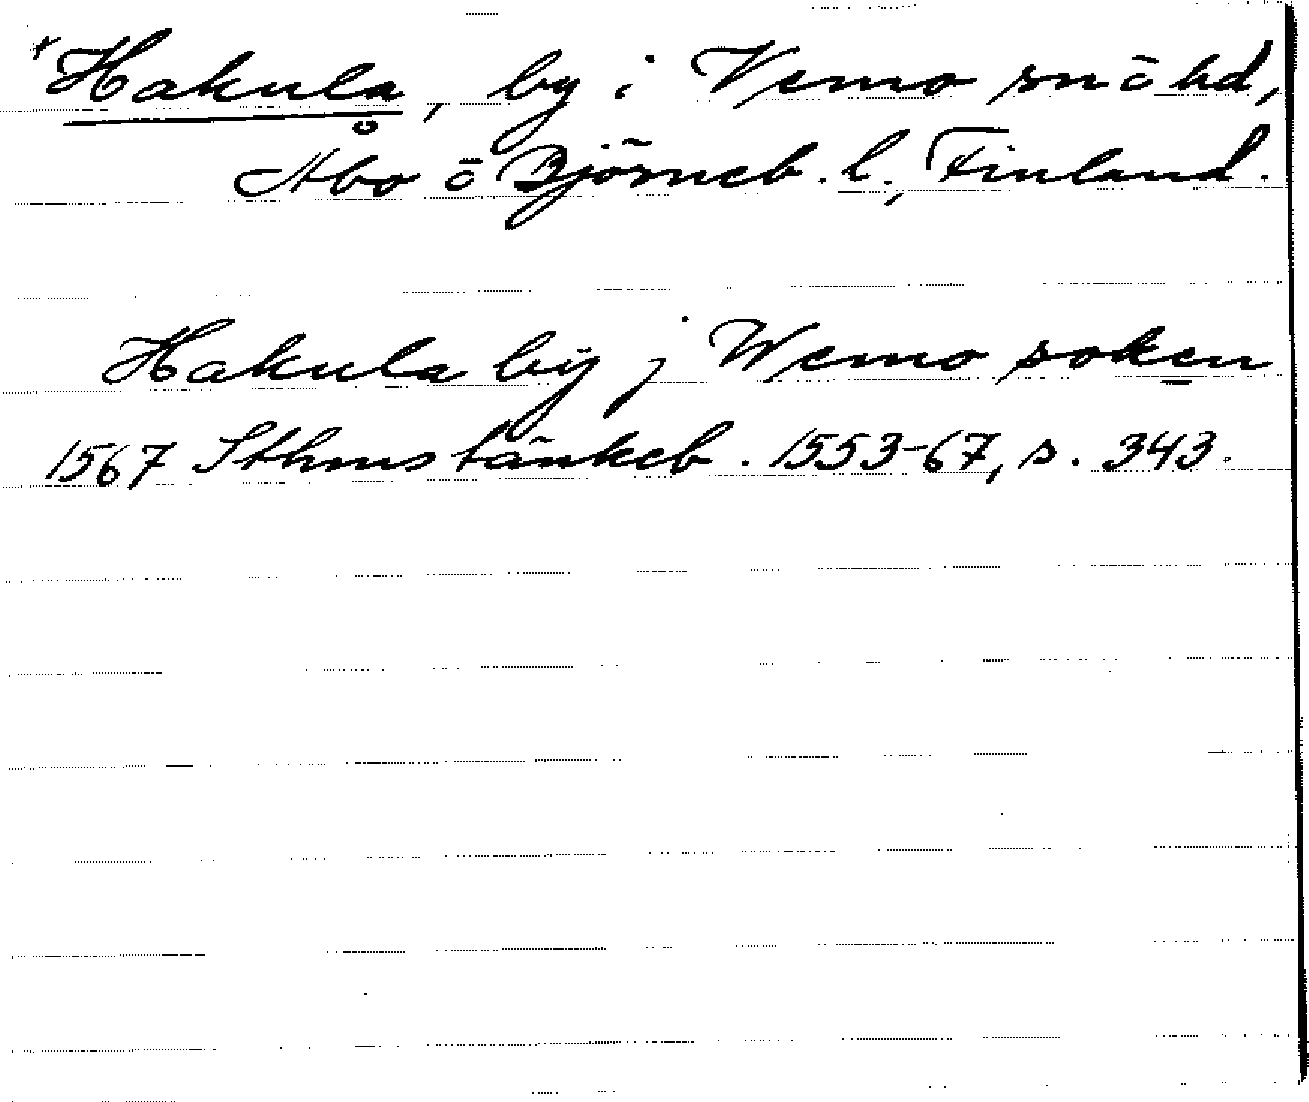 +Hakula, by i Vemo sn ō hd,
Åbo ō Björneb. l., Finland.
Hakula bÿ j Wemo soken
1567 Sthms tänkeb. 1553-67, s. 343.